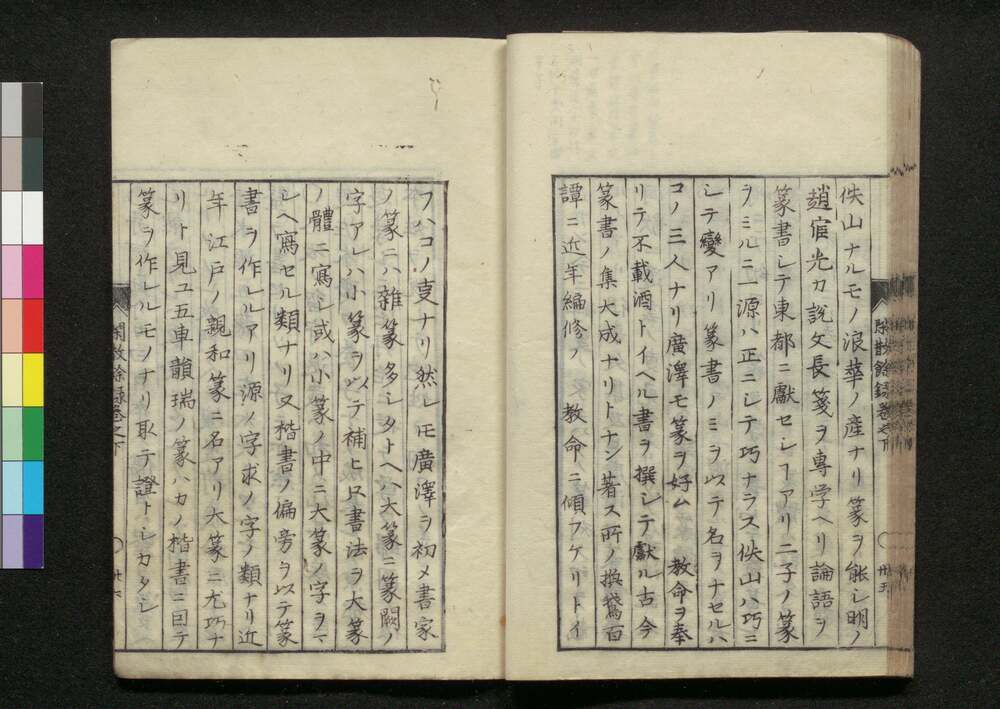 佚山ナルモノ浪華ノ産ナリ篆ヲ能シ明ノ
趙宦光カ説文長箋ヲ專学ヘリ論語ヲ
篆書シテ東都ニ獻セシヿアリ二子ノ篆
ヲミルニ一源ハ正ニシテ巧ナラス佚山ハ巧ニ
シテ變アリ篆書ノミヲ以テ名ヲナセルハ
コノ三人ナリ廣澤モ篆ヲ好ム 教命ヲ奉
リテ不載酒トイヘル書ヲ撰シテ獻ル古今
篆書ノ集大成ナリトナン著ス所ノ換鵞百
譚ニ近年編修ノ 教命ニ傾フケリトイ
閑散餘録巻之下
廿五
フハコノ叓ナリ然レモ廣澤ヲ初メ書家
ノ篆ニハ雜篆多シタトヘハ大篆ニ篆闕ノ
字アレハ小篆ヲ以テ補ヒ又書法ヲ大篆
ノ體ニ寫シ或ハ小篆ノ中ニ大篆ノ字ヲマ
シヘ寫セル類ナリ又楷書ノ偏旁ヲ以テ篆
書ヲ作レルアリ源ノ字求ノ字ノ類ナリ近
年江戸ノ親和篆ニ名アリ大篆ニ尤巧ナ
リト見ユ五車韻瑞ノ篆ハカノ楷書ニ因テ
篆ヲ作レルモノナリ取テ證トシカタシ
閑散餘録巻之下
廿六